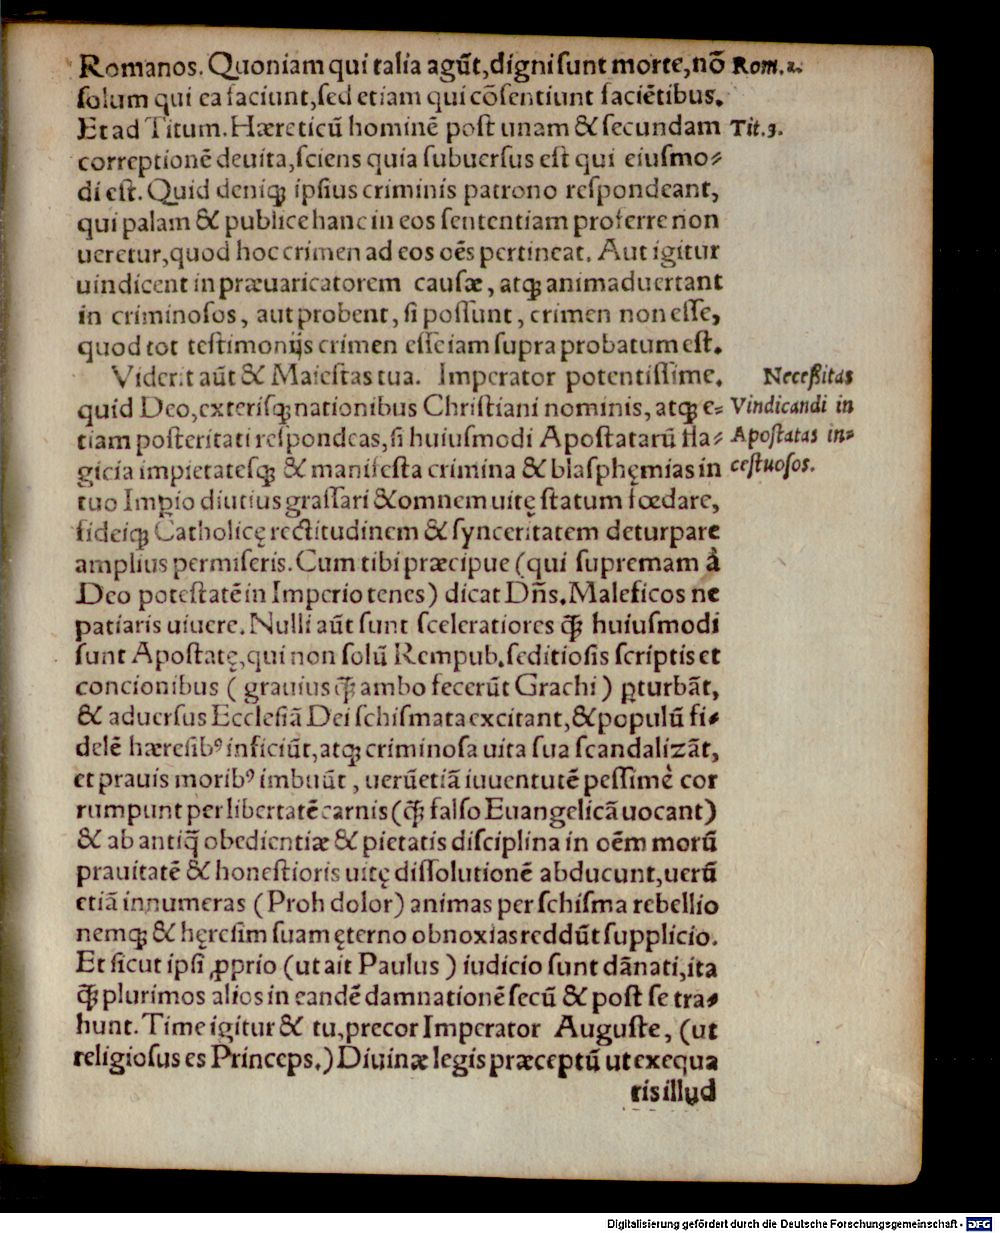 Romanos. Quoniam qui talia agūt,digni sunt morte,nō Rom.2.
solum qui ea faciunt,sed etiam qui cōsentiunt faciētibus.
Et ad Titum. Hæreticū hominē post unam & secundam Tit.3.
correptionē deuita,sciens quia subuersus est qui eiusmo⸗
di est. Quid deniqꝫ ipsius criminis patrono respondeant,
qui palam & publice hanc in eos sententiam proferre non
ueretur,quod hoc crimen ad eos oēs pertineat. Aut igitur
uindicent in præuaricatorem causæ, atqꝫ animaduertant
in criminosos, aut probent, si possunt, crimen non esse,
quod tot testimonijs crimen esse iam supra probatum est.
Viderit aūt & Maiestas tua. Imperator potentissime. Necessitas
quid Deo,exterisqꝫ nationibus Christiani nominis, atqꝫ e⸗ Vindicandi in
tiam posteritati respondeas,si huiusmodi Apostatarū fla⸗ Apostatas in⸗
gicia impietatesqꝫ & manifesta crimina & blasphęmias in cestuosos.
tuo Imꝑio diutius grassari & omnem uitę statum fœdare,
fideiqꝫ Catholicę rectitudinem & synceritatem deturpare
amplius permiseris. Cum tibi præcipue (qui supremam à
Deo potestatē in Imperio tenes) dicat Dn̄s. Maleficos ne
patiaris uiuere. Nulli aūt sunt sceleratiores q̄ꝫ huiusmodi
sunt Apostatę,qui non solū Rempub. seditiosis scriptis et
concionibus ( grauius q̄ꝫ ambo fecerūt Grachi ) ꝑturbāt,
& aduersus Ecclesiā Dei schismata excitant,& populū fi⸗
delē hæresibꝰ inficiūt,atqꝫ criminosa uita sua scandalizāt,
et prauis moribꝰ imbuūt, uerūetiā iuuentutē pessimè cor
rumpunt per libertatē carnis (q̄ꝫ falso Euangelicā uocant)
& ab antiq̄ obedientiæ & pietatis disciplina in oēm morū
prauitatē & honestioris uitę dissolutionē abducunt,uerū
etiā innumeras (Proh dolor) animas per schisma rebellio
nemqꝫ & hęresim suam ęterno obnoxias reddūt supplicio.
Et sicut ipsi ꝓprio (ut ait Paulus ) iudicio sunt dānati,ita
q̄ꝫ plurimos alios in eandē damnationē secū & post se tra⸗
hunt. Time igitur & tu,precor Imperator Auguste, (ut
religiosus es Princeps.) Diuinæ legis præceptū ut exequa
ris illud
Digitalisierung gefördert durch die Deutsche Forschungsgemeinschaft - DFG